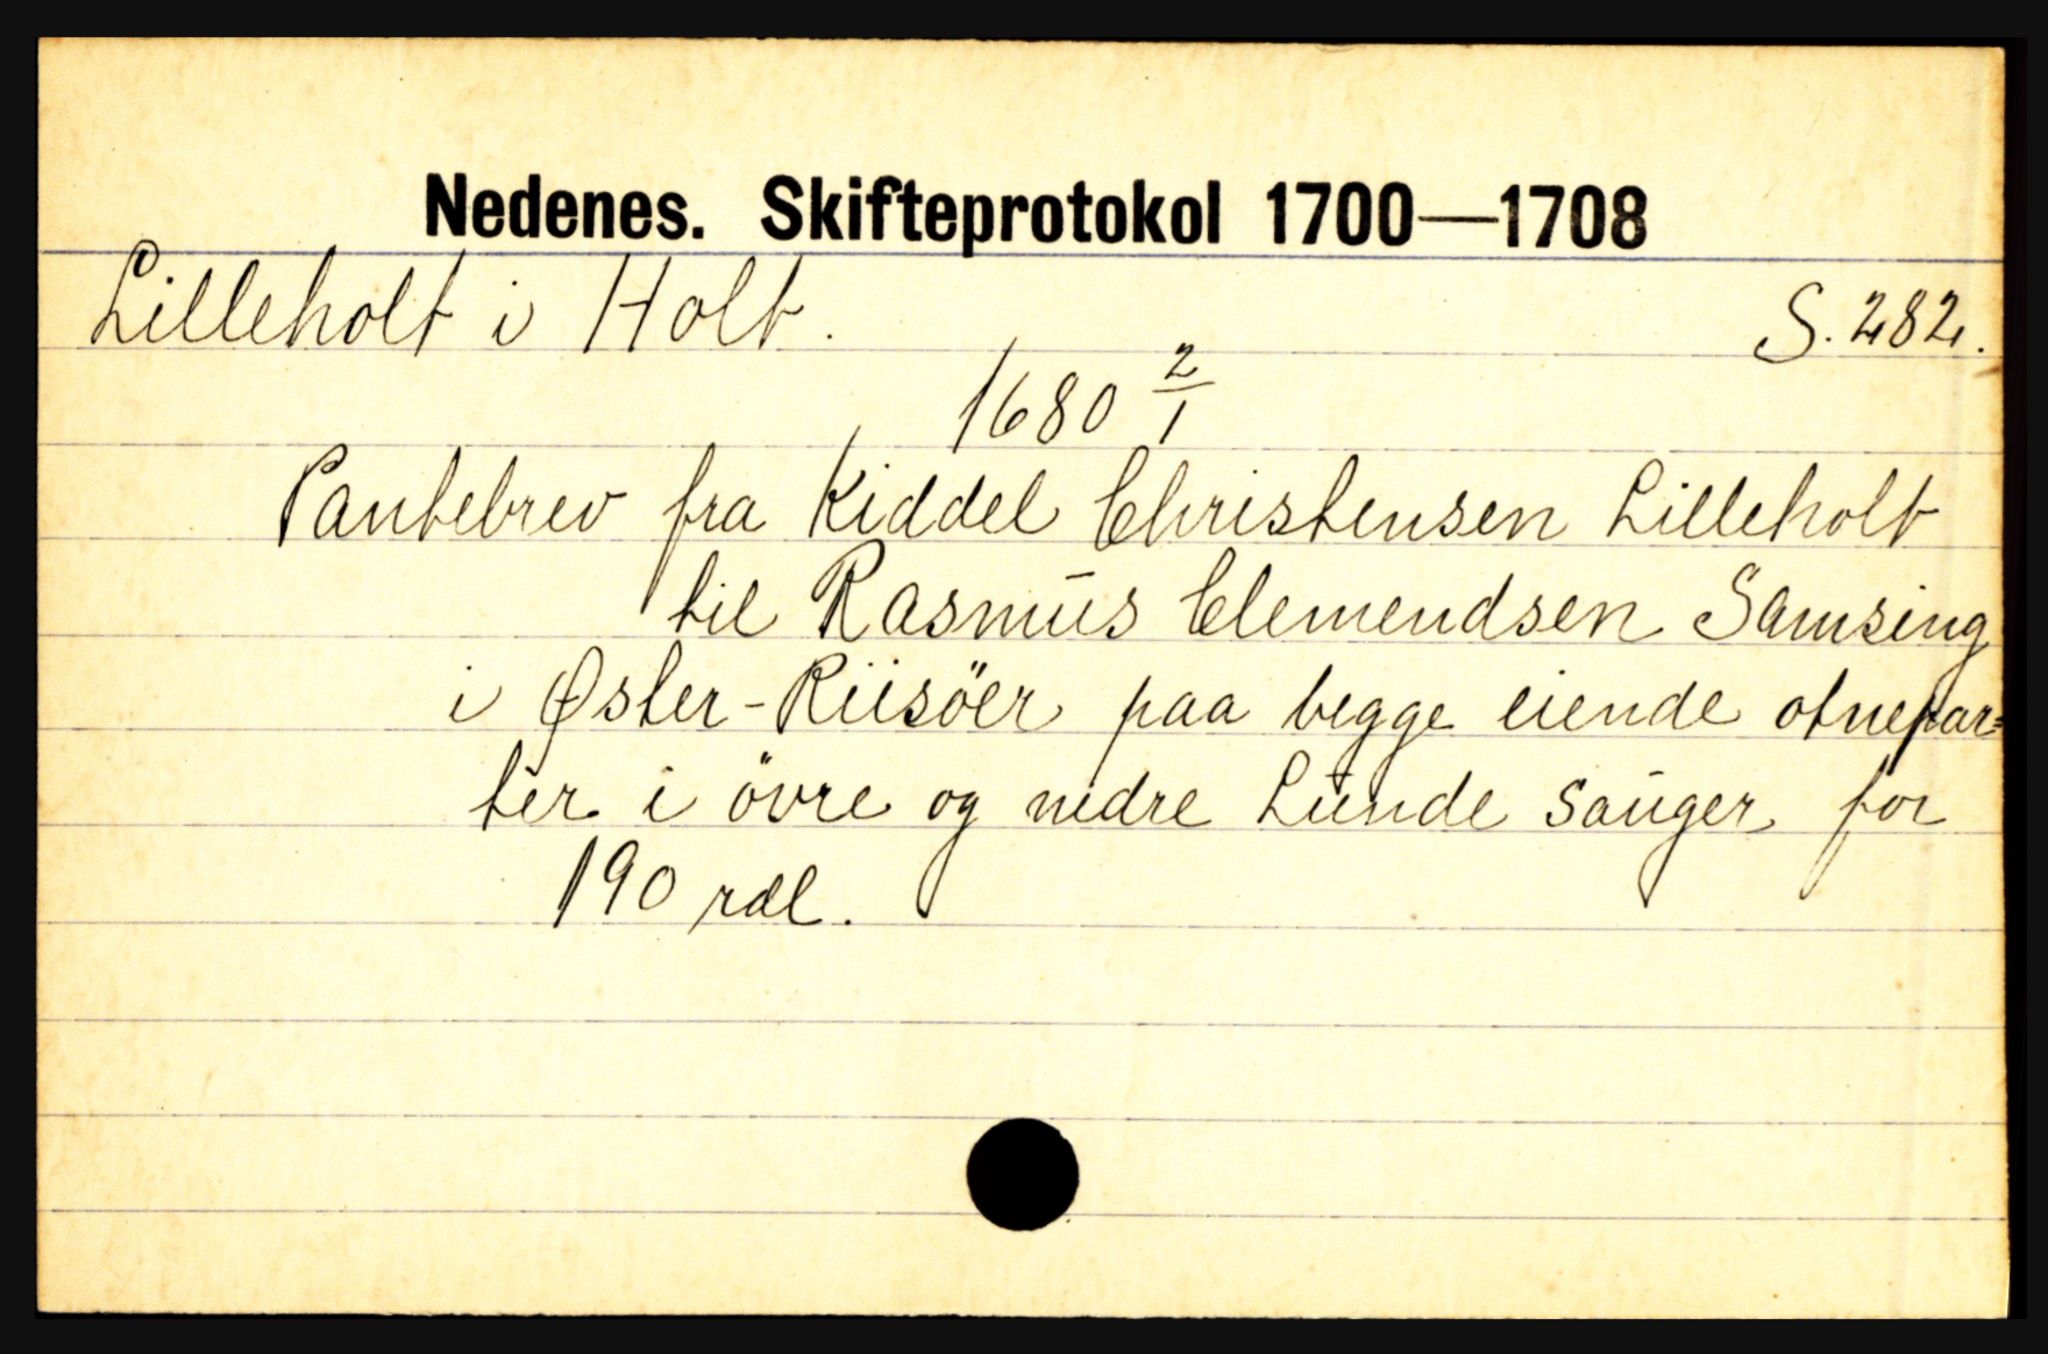 Nedenes. Skifteprotokol 1700—1708
Lilleholt i Holt. S. 282.
1680 2/1
Pantebrev fra Kiddel Christensen Lilleholt
til Rasmus Clemendsen Samsing
i Øster-Riisöer paa begge eiende otnepar=
ter i övre og nedre Lunde sauger for
190 rdl.